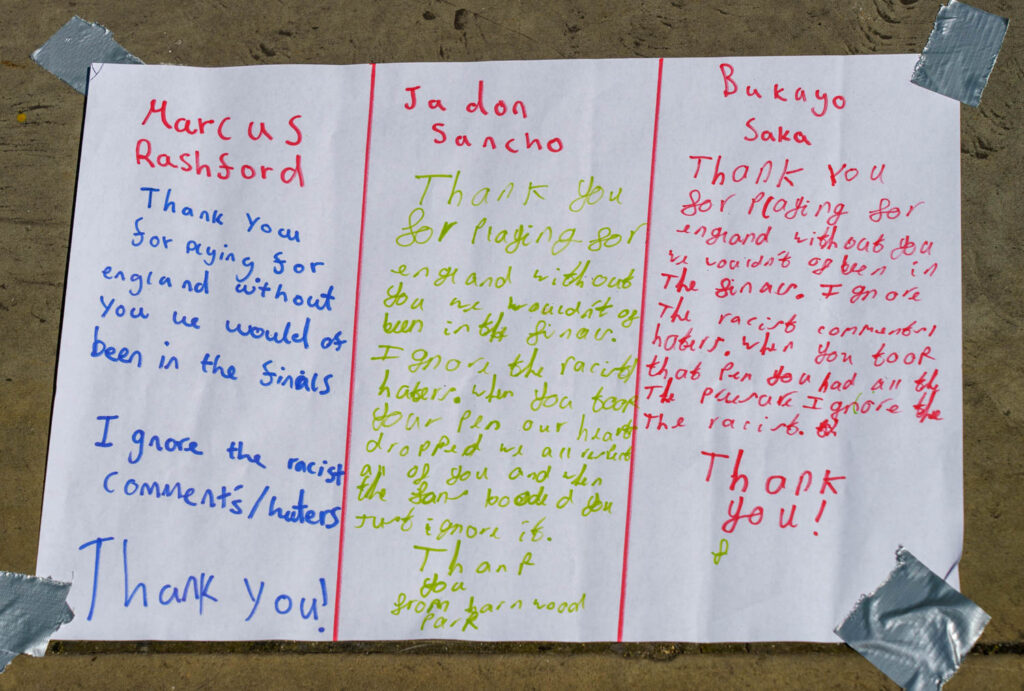 Marcus
Rashford
Thank you
for playing for
england without
you we would of
been in the finals
I gnore the racist
comment's/haters
Thank you!
Jadon
Sancho
Thank you
for Playing for
england without
you we wouldn't of
been in the finals.
I gnore the racist
haters. when you took
your Pen our heart
dropped we all resfect
all of you and when
the fans booed you
Just ignore it.
Thank
you
from barnwood
Park
Bukayo
Saka
Thank you
for Playing for
england without you
we wouldn't of been in
The finals. I gnore
The racist comments/
haters. when you took
that Pen you had all the
The I gnore the
The racist.
Thank
you!